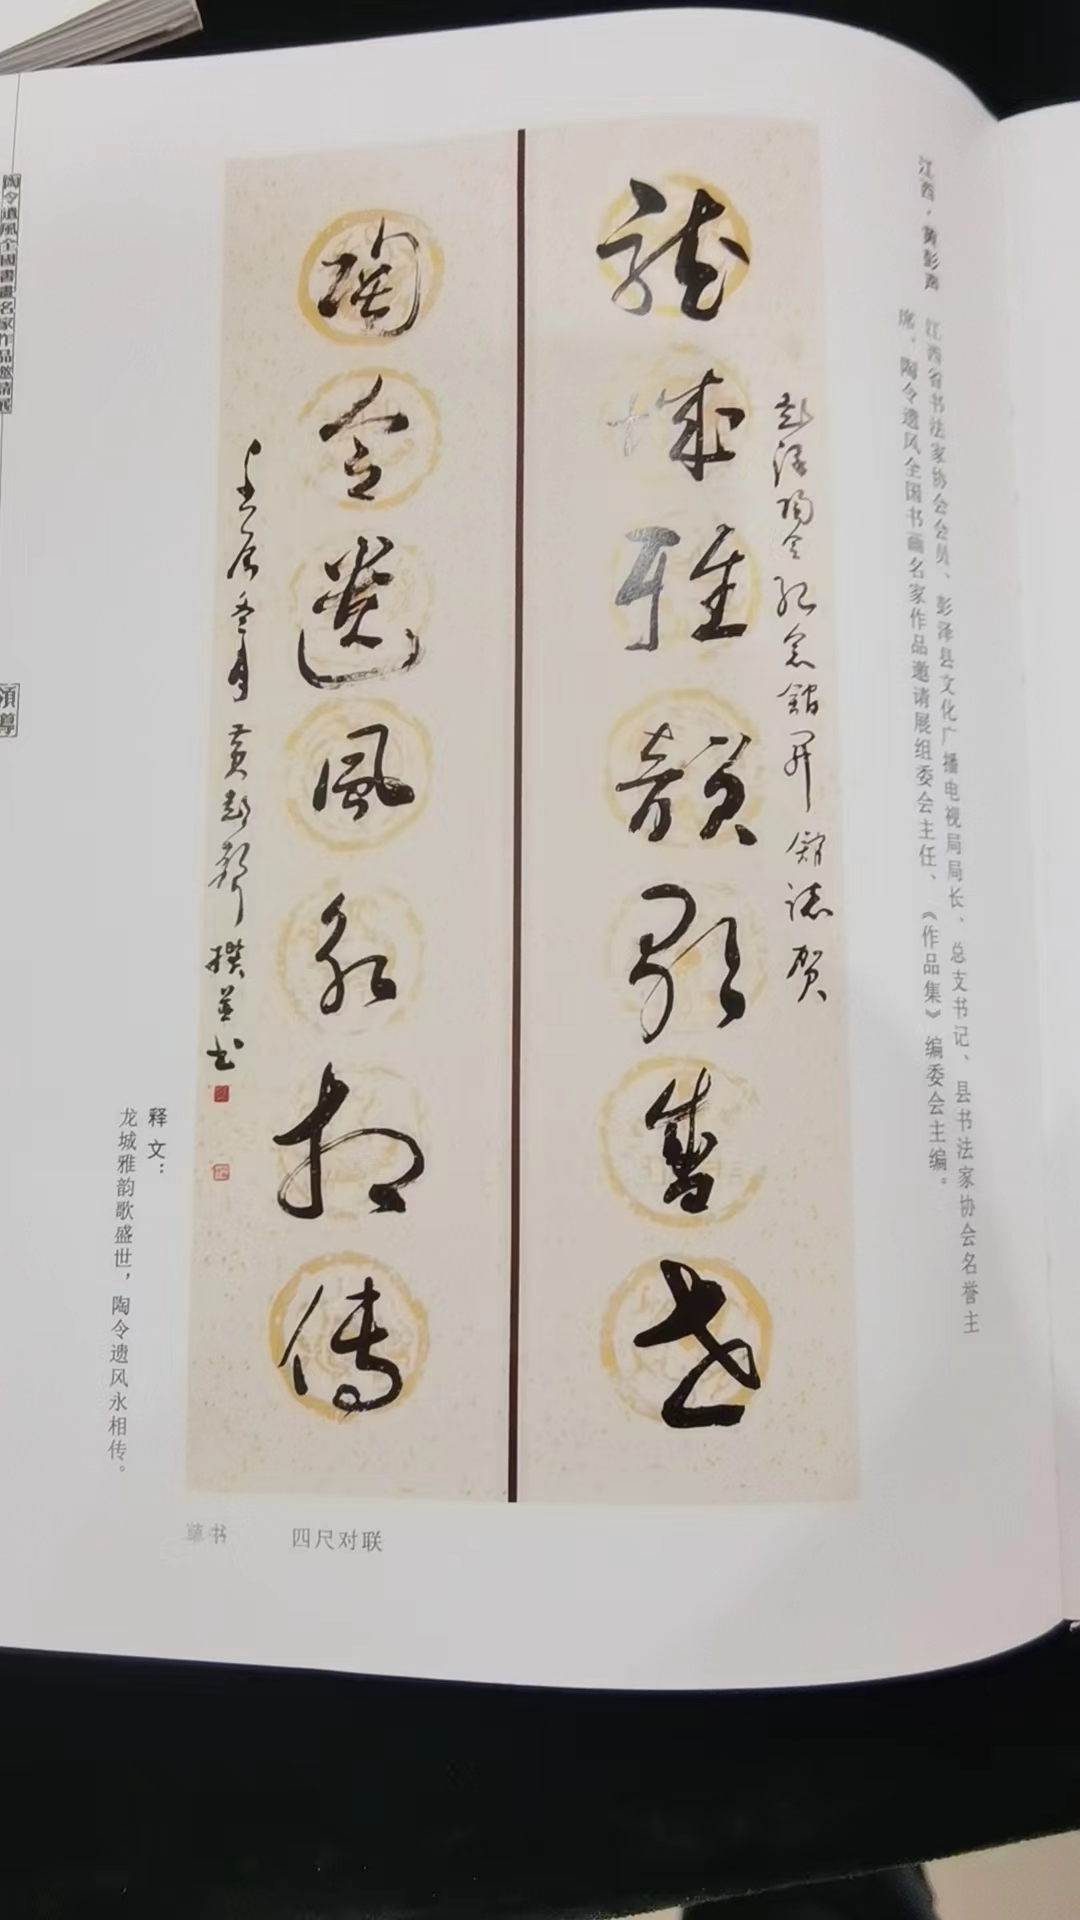 江西·黄彭声
江西省书法家协会会员、彭泽县文化广播电视局局长、总支书记、县书法家协会名誉主
席，陶令遗风全国书画名家作品邀请展组委会主任、《作品集》编委会主编。
彭泽陶令纪念馆开馆志贺
龙城雅韵歌盛世
陶令遗风永相传
冬月黄彭声撰并书
释文：
龙城雅韵歌盛世，陶令遗风永相传。
草书 四尺对联
陶令遺風全國書畫名家作品邀請展
領導